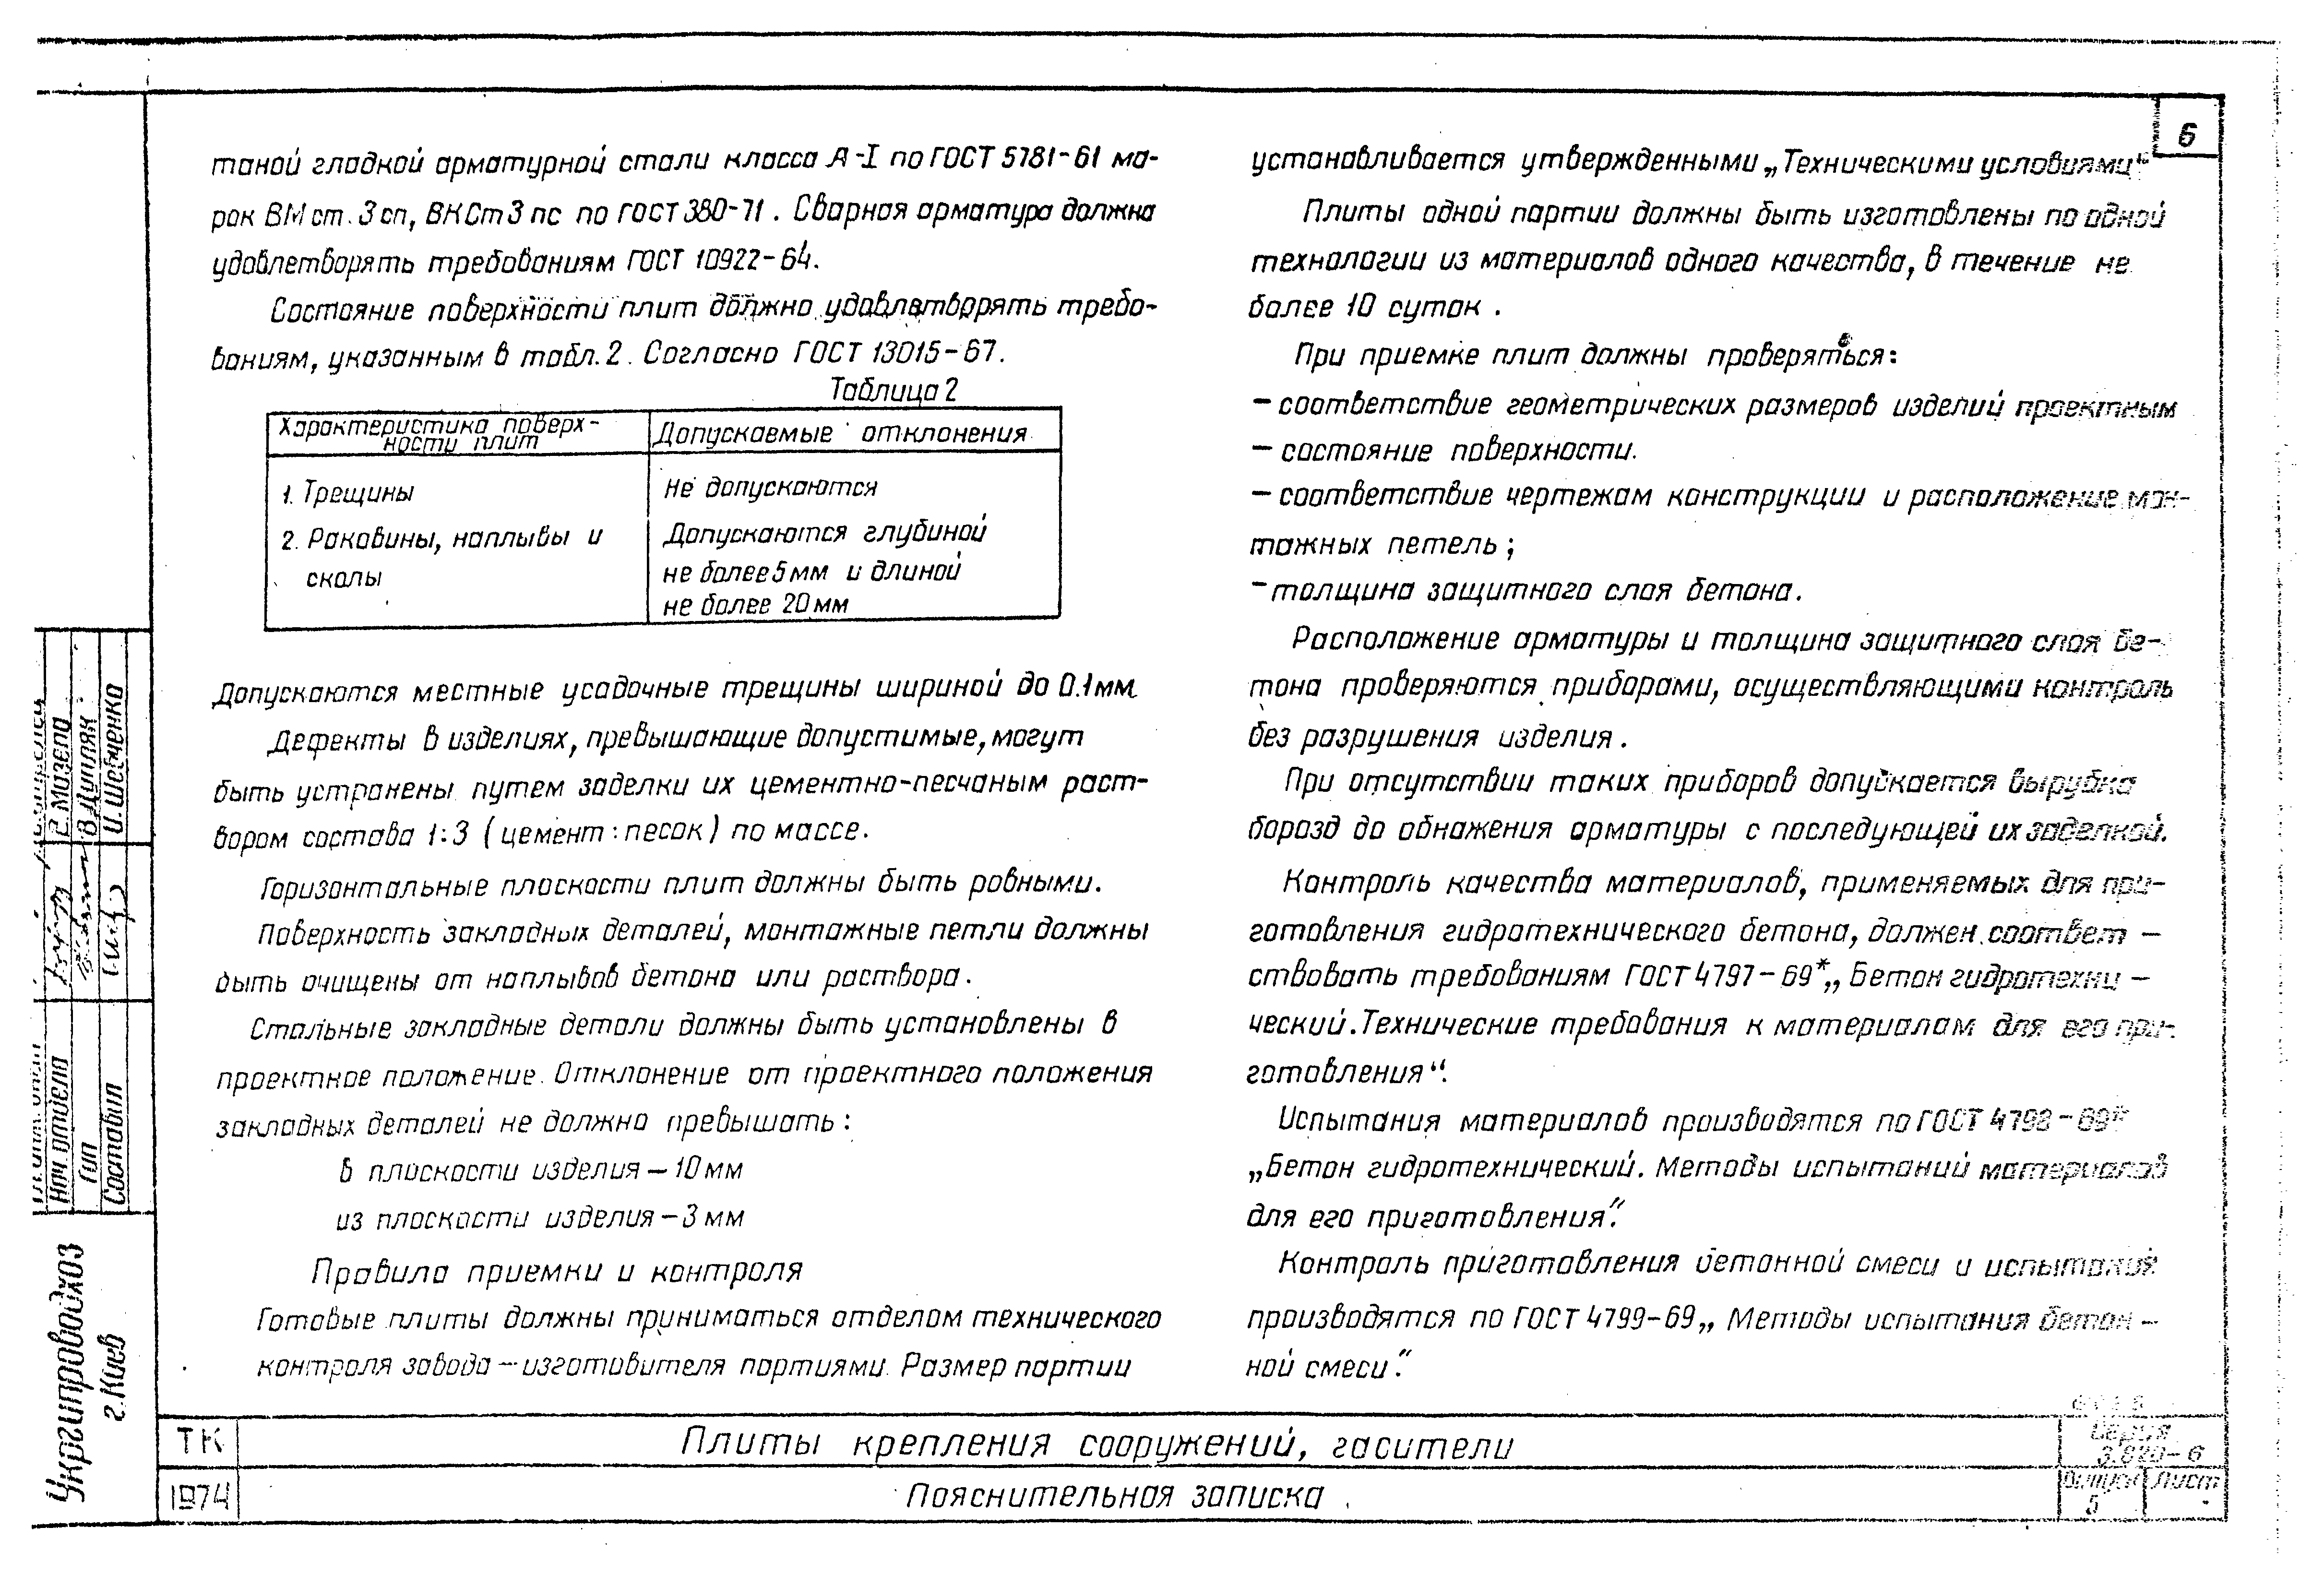 6
таной гладкой арматурной стали класса А-I по ГОСТ 5781-61 ма-
рок ВМ ст. 3 сп, ВКСт 3 пс по ГОСТ 380-71. Сварная арматура должна
удовлетворять требованиям ГОСТ 10922-64.
Состояние поверхности плит должно удовлетворять требо-
ваниям, указанным в табл. 2. Согласно ГОСТ 13015-67.
Таблица 2
Характеристика поверх-
ности плит
Допускаемые отклонения
1. Трещины
Не допускаются
2. Раковины, наплывы и
сколы
Допускаются глубиной
не более 5 мм и длиной
не более 20 мм
Допускаются местные усадочные трещины шириной до 0.1 мм
Дефекты в изделиях, превышающие допустимые, могут
быть устранены путем заделки их цементно-песчаным раст-
вором состава 1:3 (цемент : песок) по массе.
Горизонтальные плоскости плит должны быть ровными.
Поверхность закладных деталей, монтажные петли должны
быть очищены от наплывов бетона или раствора.
Стальные закладные детали должны быть установлены в
проектное положение. Отклонение от проектного положения
закладных деталей не должно превышать:
в плоскости изделия - 10 мм
из плоскости изделия - 3 мм
Правила приемки и контроля
Готовые плиты должны приниматься отделом технического
контроля завода - изготовителя партиями. Размер партии
устанавливается утвержденными „Техническими условиями“
Плиты одной партии должны быть изготовлены по одной
технологии из материалов одного качества, в течение не
более 10 суток.
При приемке плит должны проверяться:
- соответствие геометрических размеров изделий проектным
- состояние поверхности.
- соответствие чертежам конструкции и расположение мон-
тажных петель;
- толщина защитного слоя бетона.
Расположение арматуры и толщина защитного слоя бе-
тона проверяются приборами, осуществляющими контроль
без разрушения изделия.
При отсутствии таких приборов допускается вырубка
борозд до обнажения арматуры с последующей их заделкой.
Контроль качества материалов, применяемых для при-
готовления гидротехнического бетона, должен соответ-
ствовать требованиям ГОСТ 4797-69* „Бетон гидротехни-
ческий. Технические требования к материалам для его при-
готовления“.
Испытания материалов производятся по ГОСТ 4798-69*
„Бетон гидротехнический. Методы испытаний материалов
для его приготовления“.
Контроль приготовления бетонной смеси и испытания
производятся по ГОСТ 4799-69 „Методы испытания бетон-
ной смеси“.
Нач. отдела
Е. Мазепа
ГИП
Составил
И. Шевченко
Укргипроводхоз
г. Киев
ТК
1974
Плиты крепления сооружений, гасители
Пояснительная записка
Серия
3.820-6
Выпуск
5
Лист